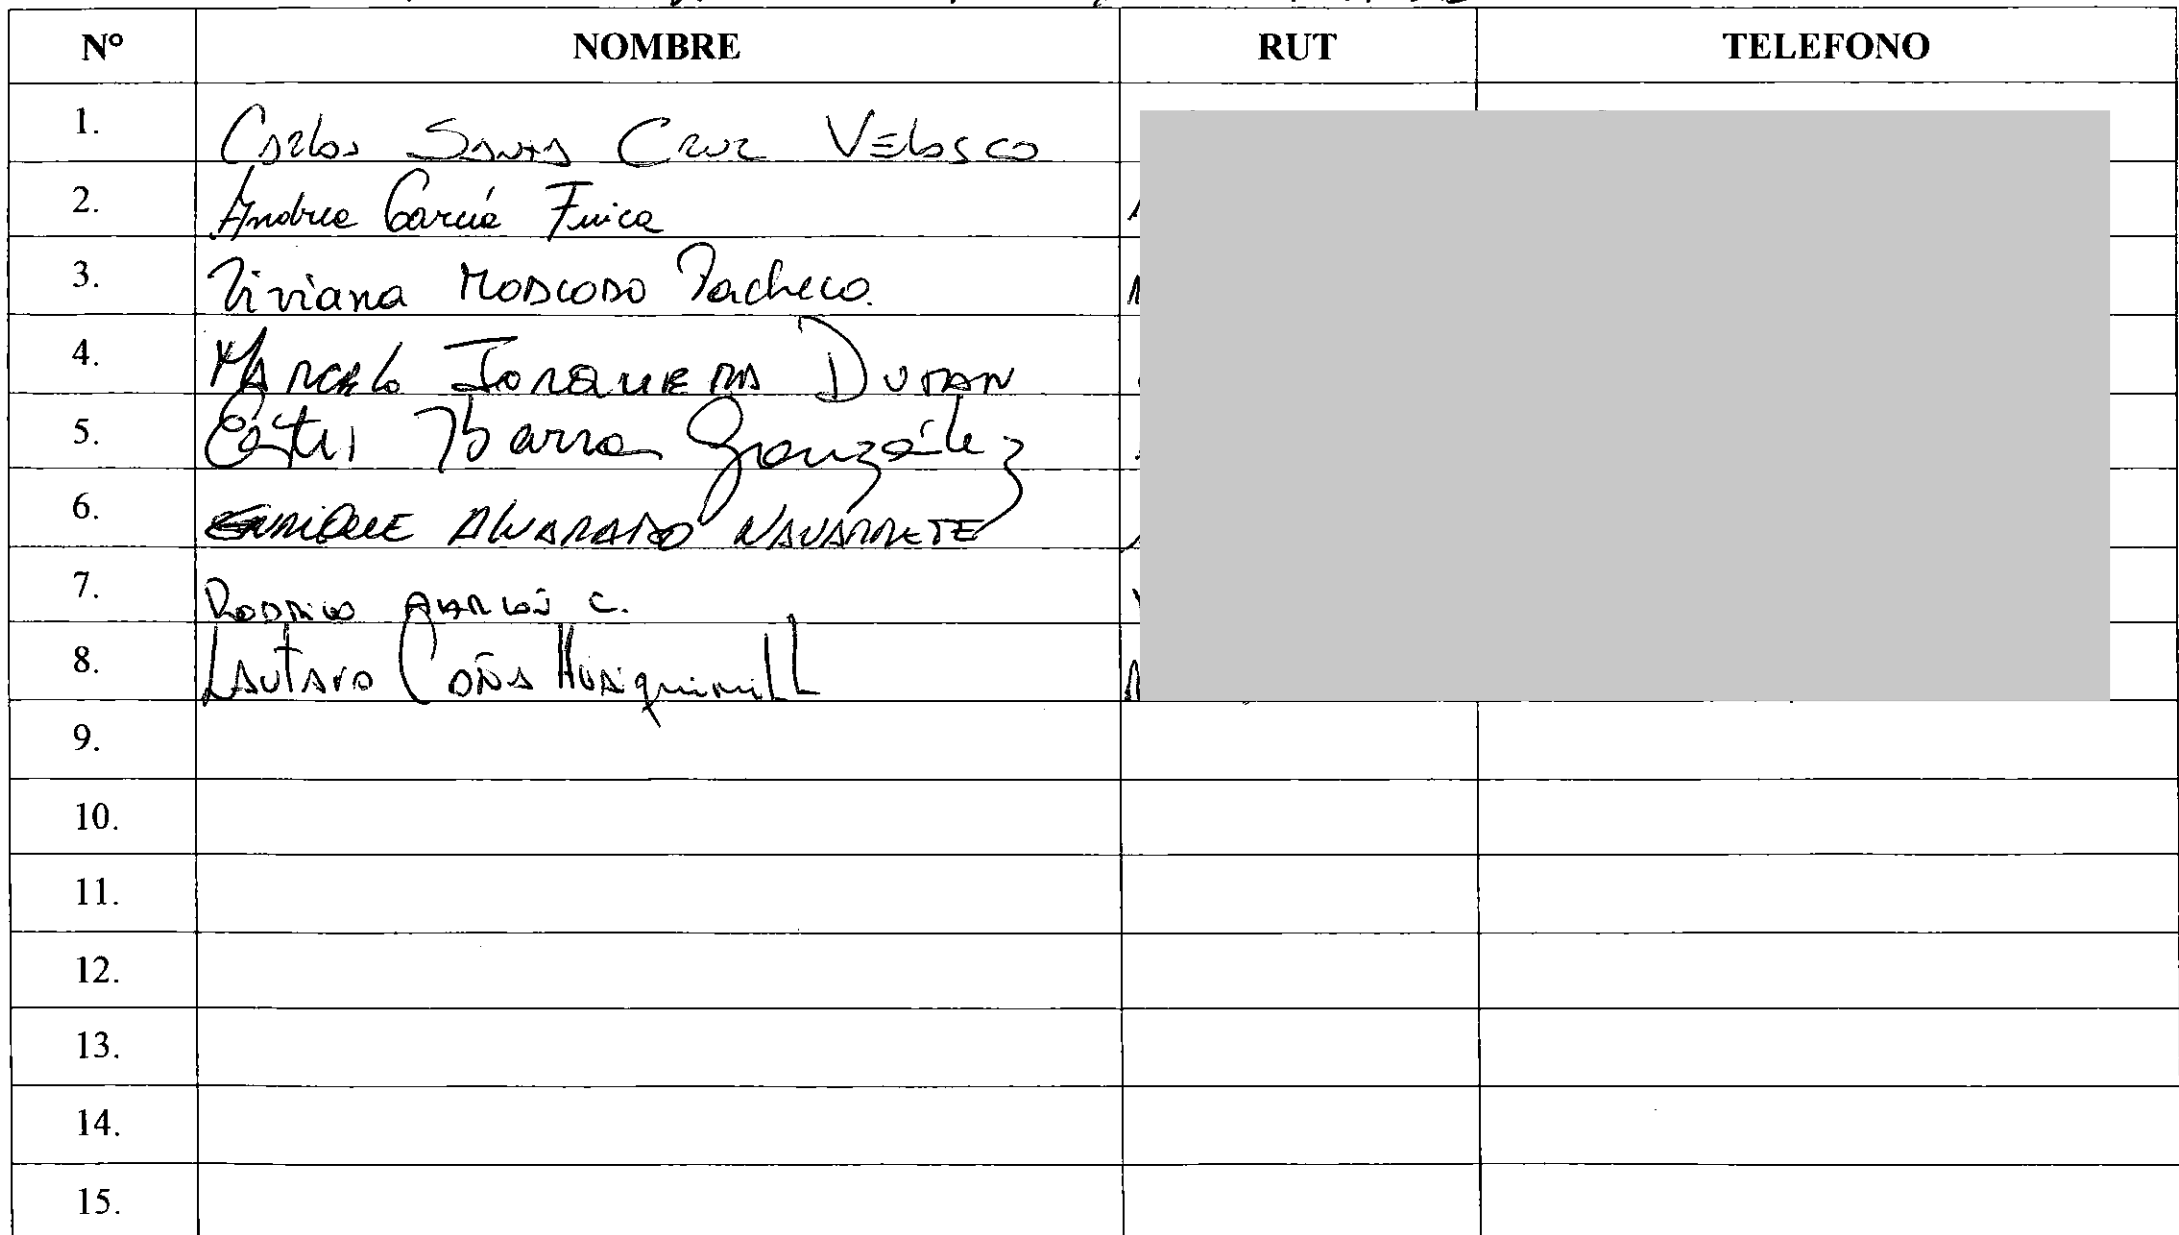 N° NOMBRE RUT TELEFONO
1. Carlos Santa Cruz Velasco
2. Andrea García Fuica
3. Viviana Moscoso Pacheco.
4. Marcelo Jorquera Duran
5. Barra González
6. Enrique Alvarado Navarrete
7. Rodrigo Alarcón C.
8. Lautaro Coña
9.
10.
11.
12.
13.
14.
15.